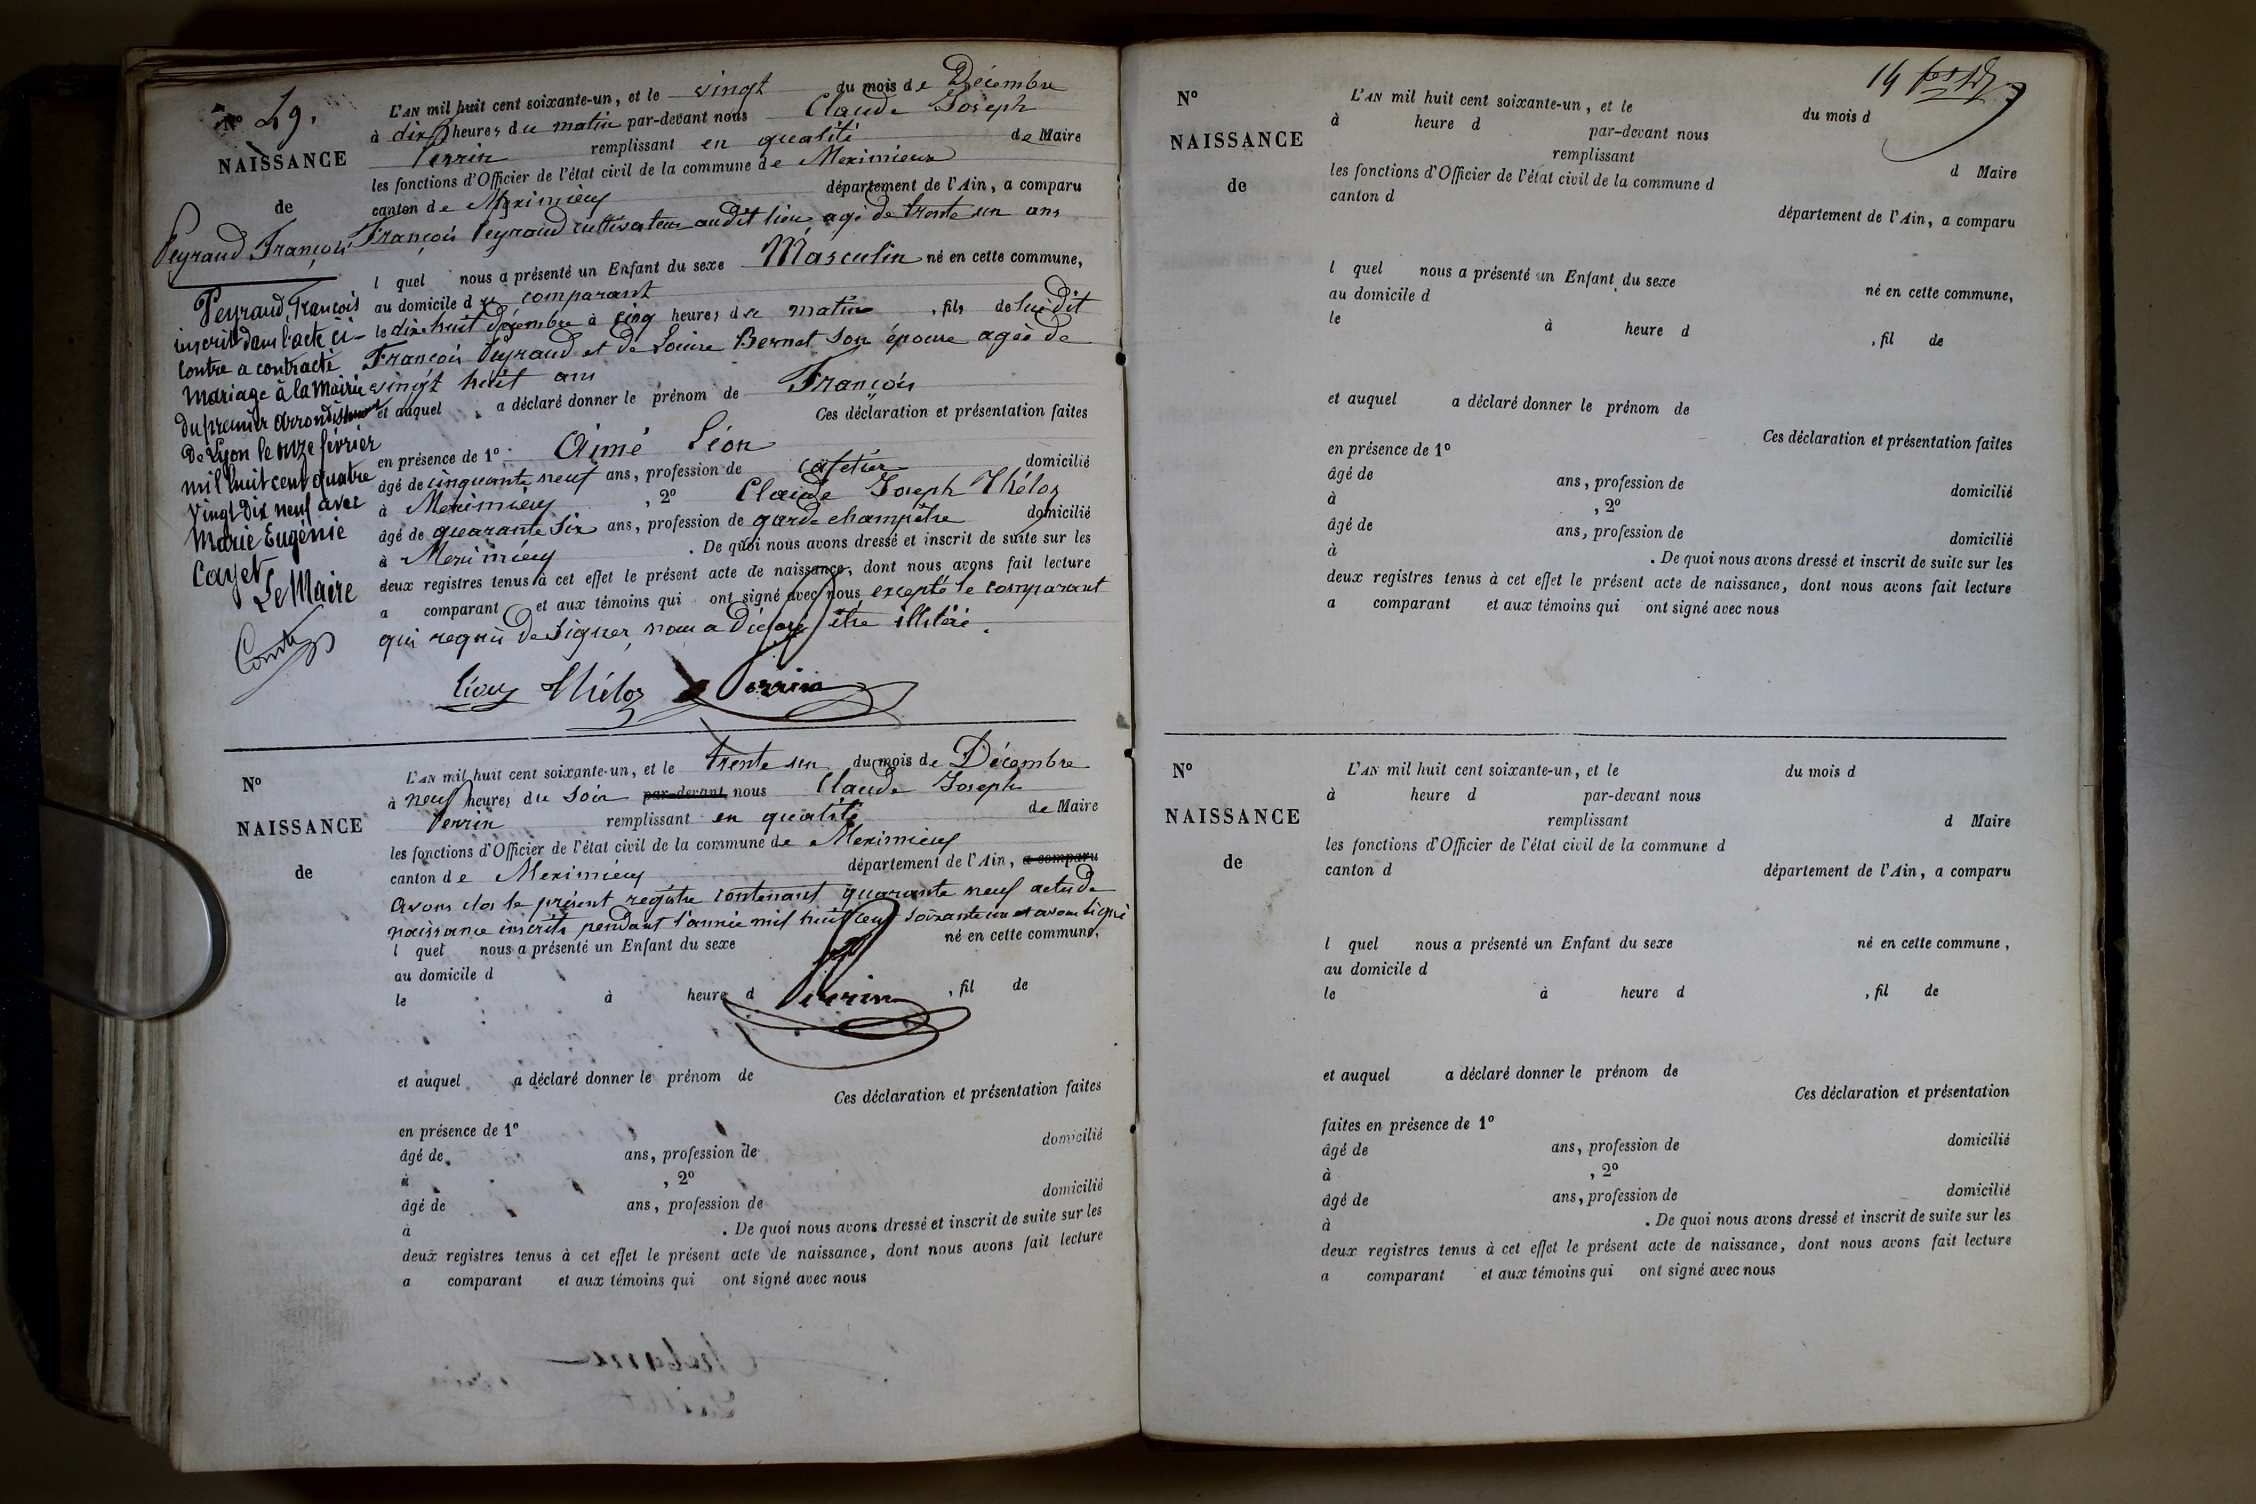 N° 49.
NAISSANCE
de
Peyraud François
L'AN mil huit cent soixante-un, et le vingt du mois de Décembre
à dix heures du matin par-devant nous Claude Joseph
Perrin remplissant en qualité de Maire
les fonctions d'Officier de l'état civil de la commune de Meximieux
canton de Meximieux département de l'Ain, a comparu
François Peyraud cultivateur audit lieu agé de trente un ans
l quel nous a présenté un Enfant du sexe Masculin né en cette commune,
au domicile du comparant
le dix huit Décembre à cinq heures du matin, fils de sudit
François Peyraud et de Louise Bernet son épouse agée de
vingt huit ans
et auquel a déclaré donner le prénom de François
Ces déclaration et présentation faites
en présence de 1° Aimé Léon
âgé de cinquante neuf ans, profession de cafetier domicilié
à Meximieux, 2° Claude Joseph Thélos
âgé de quarante six ans, profession de garde champêtre domicilié
à Meximieux. De quoi nous avons dressé et inscrit de suite sur les
deux registres tenus à cet effet le présent acte de naissance, dont nous avons fait lecture
a comparant et aux témoins qui ont signé avec nous excepté le comparant
qui requis de signer, nous a déclaré être illitéré.
Léon Thélos Perrin
Peyraud, François
inscrit dans l'acte ci-
contre a contracté
mariage à la Mairie
du premier arrondissement
de Lyon le onze février
mil huit cent quatre
vingt dix neuf avec
Marie Eugénie
Cayet
Le Maire
N°
NAISSANCE
de
L'AN mil huit cent soixante-un, et le trente un du mois de Décembre
à neuf heures du soir par-devant nous Claude Joseph
Perrin remplissant en qualité de Maire
les fonctions d'Officier de l'état civil de la commune de Meximieux
canton de Meximieux département de l'Ain, a comparu
avons clos le présent registre contenant quarante neuf actes de
naissance inscrits pendant l'année mil huit cent soixante un et avons signé
l quel nous a présenté un Enfant du sexe né en cette commune,
au domicile d
le à heure d, fil de
Perrin
et auquel a déclaré donner le prénom de
Ces déclaration et présentation faites
en présence de 1°
âgé de ans, profession de domicilié
à, 2°
âgé de ans, profession de domicilié
à. De quoi nous avons dressé et inscrit de suite sur les
deux registres tenus à cet effet le présent acte de naissance, dont nous avons fait lecture
a comparant et aux témoins qui ont signé avec nous
14
N°
NAISSANCE
de
L'AN mil huit cent soixante-un, et le du mois d
à heure d par-devant nous
remplissant d Maire
les fonctions d'Officier de l'état civil de la commune d
canton d département de l'Ain, a comparu
l quel nous a présenté un Enfant du sexe né en cette commune,
au domicile d
le à heure d, fil de
et auquel a déclaré donner le prénom de
Ces déclaration et présentation faites
en présence de 1°
âgé de ans, profession de domicilié
à, 2°
âgé de ans, profession de domicilié
à. De quoi nous avons dressé et inscrit de suite sur les
deux registres tenus à cet effet le présent acte de naissance, dont nous avons fait lecture
a comparant et aux témoins qui ont signé avec nous
N°
NAISSANCE
de
L'AN mil huit cent soixante-un, et le du mois d
à heure d par-devant nous
remplissant d Maire
les fonctions d'Officier de l'état civil de la commune d
canton d département de l'Ain, a comparu
l quel nous a présenté un Enfant du sexe né en cette commune,
au domicile d
le à heure d, fil de
et auquel a déclaré donner le prénom de
Ces déclaration et présentation
faites en présence de 1°
âgé de ans, profession de domicilié
à, 2°
âgé de ans, profession de domicilié
à. De quoi nous avons dressé et inscrit de suite sur les
deux registres tenus à cet effet le présent acte de naissance, dont nous avons fait lecture
a comparant et aux témoins qui ont signé avec nous